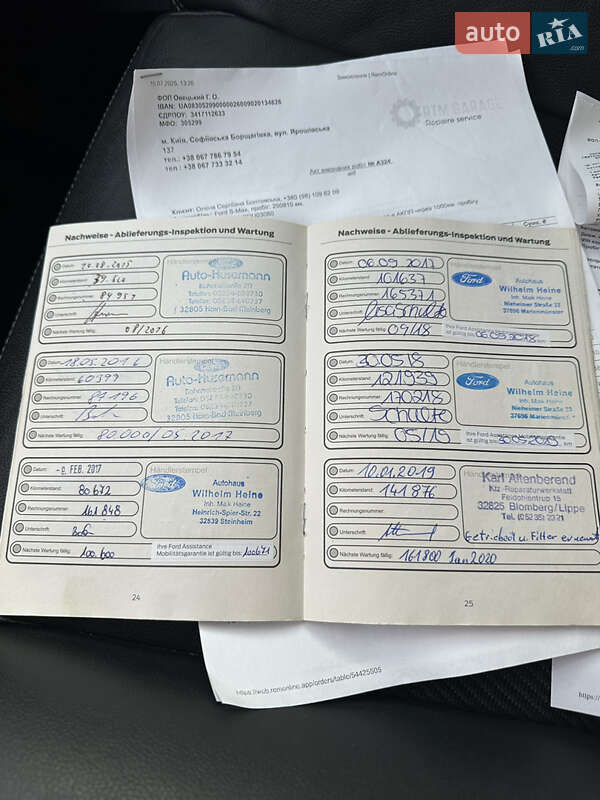 auto RIA .com
15.07.2025, 13:26
Замовлення | RemOnline
ФОП Овецький Г. О.
IBAN: UA083052990000026009020134626
ЄДРПОУ: 3417112633
МФО: 305299
RTM GARAGE
Repaire service
м. Київ, Софіївська Борщагівка, вул. Ярошівська
137
тел.: +38 067 786 79 54
тел.: +38 067 733 32 14
Акт виконаних робіт № A324
Nachweise - Ablieferungs-Inspektion und Wartung
Datum:
Händlerstempel
Kilometerstand:
Ford
Auto-Husemann
Rechnungsnummer: 84957
32805 Horn-Bad Meinberg
Unterschrift:
Nächste Wartung fällig: 08/2016
Datum: 18.05.2016
Händlerstempel
Kilometerstand: 60599
Auto-Husemann
Rechnungsnummer: 87196
32805 Horn-Bad Meinberg
Unterschrift:
Nächste Wartung fällig: 80.000/05.2017
Datum: -8. FEB. 2017
Händlerstempel
Ford
Autohaus
Kilometerstand: 80672
Wilhelm Heine
Inh. Maik Heine
Rechnungsnummer: 161848
Heinrich-Spier-Str. 22
32839 Steinheim
Unterschrift:
Nächste Wartung fällig: 100.600
Ihre Ford Assistance
Mobilitätsgarantie ist gültig bis: 100671
24
Nachweise - Ablieferungs-Inspektion und Wartung
Datum: 06.09.2017
Händlerstempel
Kilometerstand: 101637
Ford
Autohaus
Wilhelm Heine
Rechnungsnummer: 165371
Inh. Maik Heine
Nieheimer Straße 23
37696 Marienmünster
Unterschrift:
Nächste Wartung fällig: 09/18
Ihre Ford Assistance
ist gültig bis: 06.09.2018
Datum: 30.05.18
Händlerstempel
Kilometerstand: 121939
Ford
Autohaus
Wilhelm Heine
Rechnungsnummer: 170218
Inh. Maik Heine
Nieheimer Straße 23
37696 Marienmünster
Unterschrift: Schulte
Nächste Wartung fällig: 05/19
Ihre Ford Assistance
ist gültig bis: 30.05.2019
Datum: 10.01.2019
Händlerstempel
Karl Altenberend
Kilometerstand: 141876
Kfz-Reparaturwerkstatt
Feldohlentrup 15
Rechnungsnummer:
32825 Blomberg/Lippe
Tel. (05235) 2321
Unterschrift:
Getriebeöl u. Filter erneuert
Nächste Wartung fällig: 161800 Jan 2020
25
https://web.remonline.app/orders/table/54425505